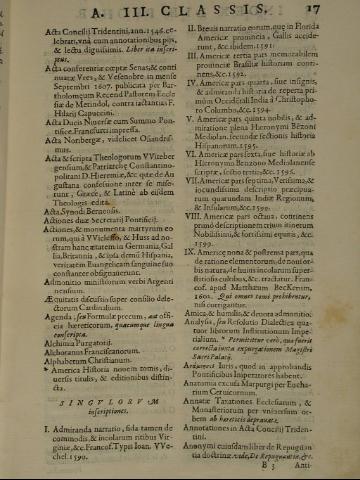 A. III. CLASSIS. 17
Acta Concilij Tridentini, ann. 1546. ce-
lebrati, vnà cum annotationibus pijs,
& lectu dignissimis. Liber ita inscri-
ptus.
Acta conferentiæ cœptæ Senas, & conti
nuatæ Vres, & Vesenobre in mense
Septembri 1607. publicata per Bar-
tholomeum Recend Pastorem Eccle
siæ de Merindol, contra iactantias F.
Hilarij Capuccini.
Acta Ducis Niuersæ cum Summo Pon-
tifice. Francfurti impressa.
Acta Norbergæ, videlicet Osiandri-
smus.
Acta & scripta Theologorum VVitteber
gensium, & Patriarchæ Constantino-
politani D. Hieremiæ, &c. quæ de Au
gustana confessione inter se mise-
runt, Græcè, & Latinè ab eisdem
Theologis edita.
Acta Synodi Bernensis.
Actiones duæ Secretarij Pontificij.
Actiones, & monumenta martyrum eo
rum, qui à VViclefo, & Huss ad no-
stram hanc ætatem in Germania, Gal
lia, Britannia, & ipsa demũ Hispania,
veritatem Euangelicam sanguine suo
constanter obsignauerunt.
Admonitio ministrorum verbi Argenti
nensium.
Æquitatis discussio super consilio dele-
ctorum Cardinalium.
Agenda, seu Formulæ precum, aut offi-
cia hæreticorum, quacumque lingua
conscripta.
Alchimia Purgatorij.
Alchoranus Franciscanorum.
Alphabetum Christianum.
* America Historia nouem tomis, di-
uersis titulis, & editionibus distin-
cta.
SINGVLORVM
inscriptiones.
I. Admiranda narratio, fida tamen de
commodis, & incolarum ritibus Vir-
giniæ, &c. Francof. Typis Ioan. VVe-
chel. 1590.
II. Breuis narratio eorum, quæ in Florida
Americæ prouincia, Gallis accide-
runt, &c. ibidem. 1591.
III. Americæ tertia pars memorabilem
prouinciæ Brasiliæ historiam conti-
nens, &c. 1592.
IV. Americæ pars quarta, siue insignis,
& admiranda historia de reperta pri-
mùm Occidentali India à Christopho-
ro Columbo, &c. 1594.
V. Americæ pars quinta nobilis, & ad-
miratione plena Hieronymi Bẽzoni
Mediolan. secundæ sectionis historia
Hispanorum. 1595.
VI. Americæ pars sexta, siue historiæ ab
Hieronymo Benzono Mediolanense
scriptæ, sectio tertia, &c. 1596.
VII. Americæ pars septima, Verissima, &
iocundissima descriptio præcipua-
rum quarundam Indiæ Regionum,
& Insularum, &c. 1599.
VIII. Americæ pars octaua, continens
primò descriptionem trium itinerum
Nobilissimi, & fortissimi equitis, &c.
1599.
IX. Americæ nona, & postrema pars, quæ
de ratione elementorum, de noui or-
bis natura, de huius incolarum super-
stitiosis cultibus, &c. tractatur. Fran-
cof. apud Matthæum Beckerum,
1602. Qui omnes tomi prohibentur,
nisi corrigantur.
Amica & humilis, & deuota admonitio.
Analysis, seu Resolutio Dialectica qua-
tuor librorum Institutionum Impe-
rialium. * Permittitur verò, quæ fuerit
correcta iuxta expurgationem Magistri
Sacri Palacij.
Iuris, quod in approbandis
Pontificibus Imperatores habent.
Anatomia excusa Marpurgi per Eucha-
rium Ceruicornum.
Annatæ Taxationes Ecclesiarum, &
Monasteriorum per vniuersum or-
bem ab hæreticis deprauatæ.
Annotationes in Acta Concilij Triden-
tini.
Anonymi cuiusdam liber de Repugnan
tia doctrinæ. vide, De Repugnantia, &c.
B 3 Anti-